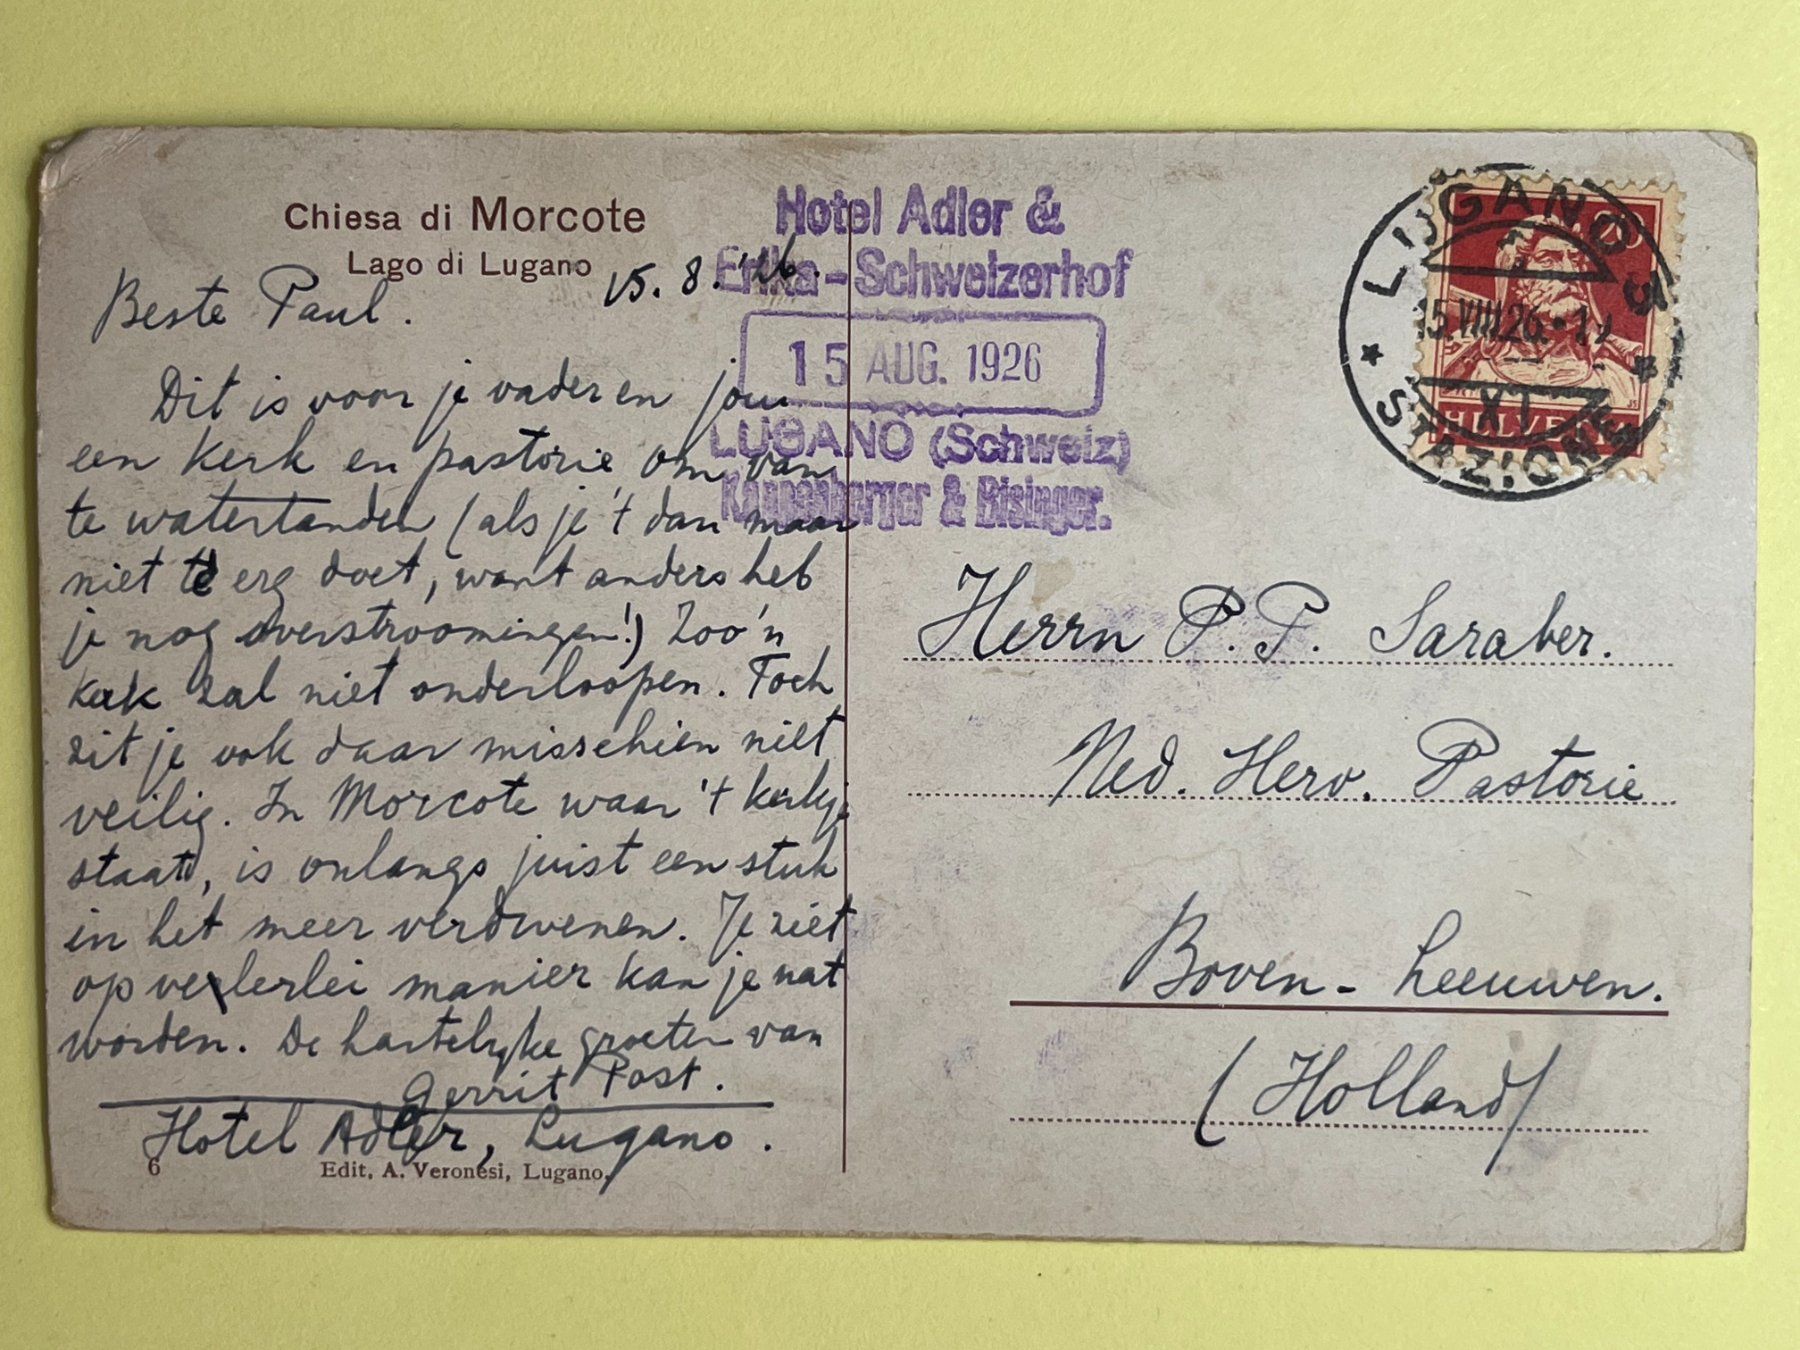 Chiesa di Morcote
Lago di Lugano
15. 8. '26.
Beste Paul.
Dit is voor je vader en jou
een kerk en pastorie, om van
te watertanden (als je 't dan maar
niet te erg doet, want anders heb
je nog overstroomingen!) Zoo'n
kerk zal niet onderloopen. Toch
zit je ook daar misschien niet
veilig. In Morcote waar 't kerkje
staat, is onlangs juist een stuk
in het meer verdwenen. Je ziet
op velerlei manier kan je nat
worden. De hartelijke groeten van
Gerrit Post.
Hotel Adler, Lugano.
6
Edit. A. Veronesi, Lugano.
Hotel Adler &
Erika-Schweizerhof
15 AUG. 1926
LUGANO (Schweiz)
Kappenberger & Bisinger.
LUGANO 5
15.VIII.26
XI
STAZIONE
20
HELVETIA
Herrn P. P. Saraber.
Ned. Herv. Pastorie
Boven-Leeuwen.
(Holland)